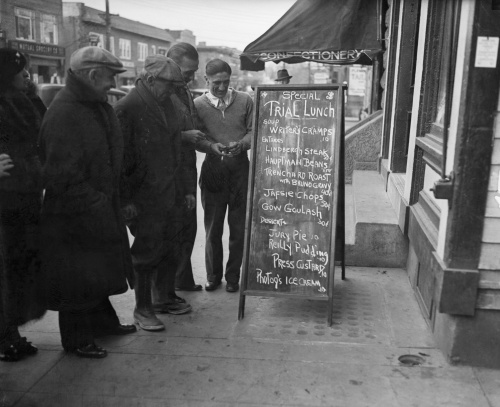 MUTUAL GROCERY CO
CONFECTIONERY
SPECIAL
TRIAL LUNCH
SOUP
WRITER'S CRAMPS
ENTREES
LINDBERGH STEAK
HAUPTMANN BEANS
TRENCHARD ROAST
WITH BRUNO GRAVY
JAFSIE CHOPS
GOW GOULASH
DESSERTS
JURY PIE
REILLY PUDDING
PRESS CUSTARD
PHOTOG'S ICE CREAM